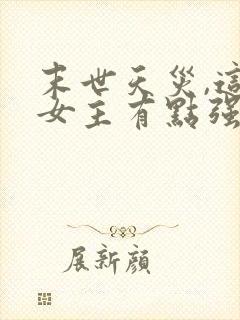 末世天災,這
女主有點强
展新顏